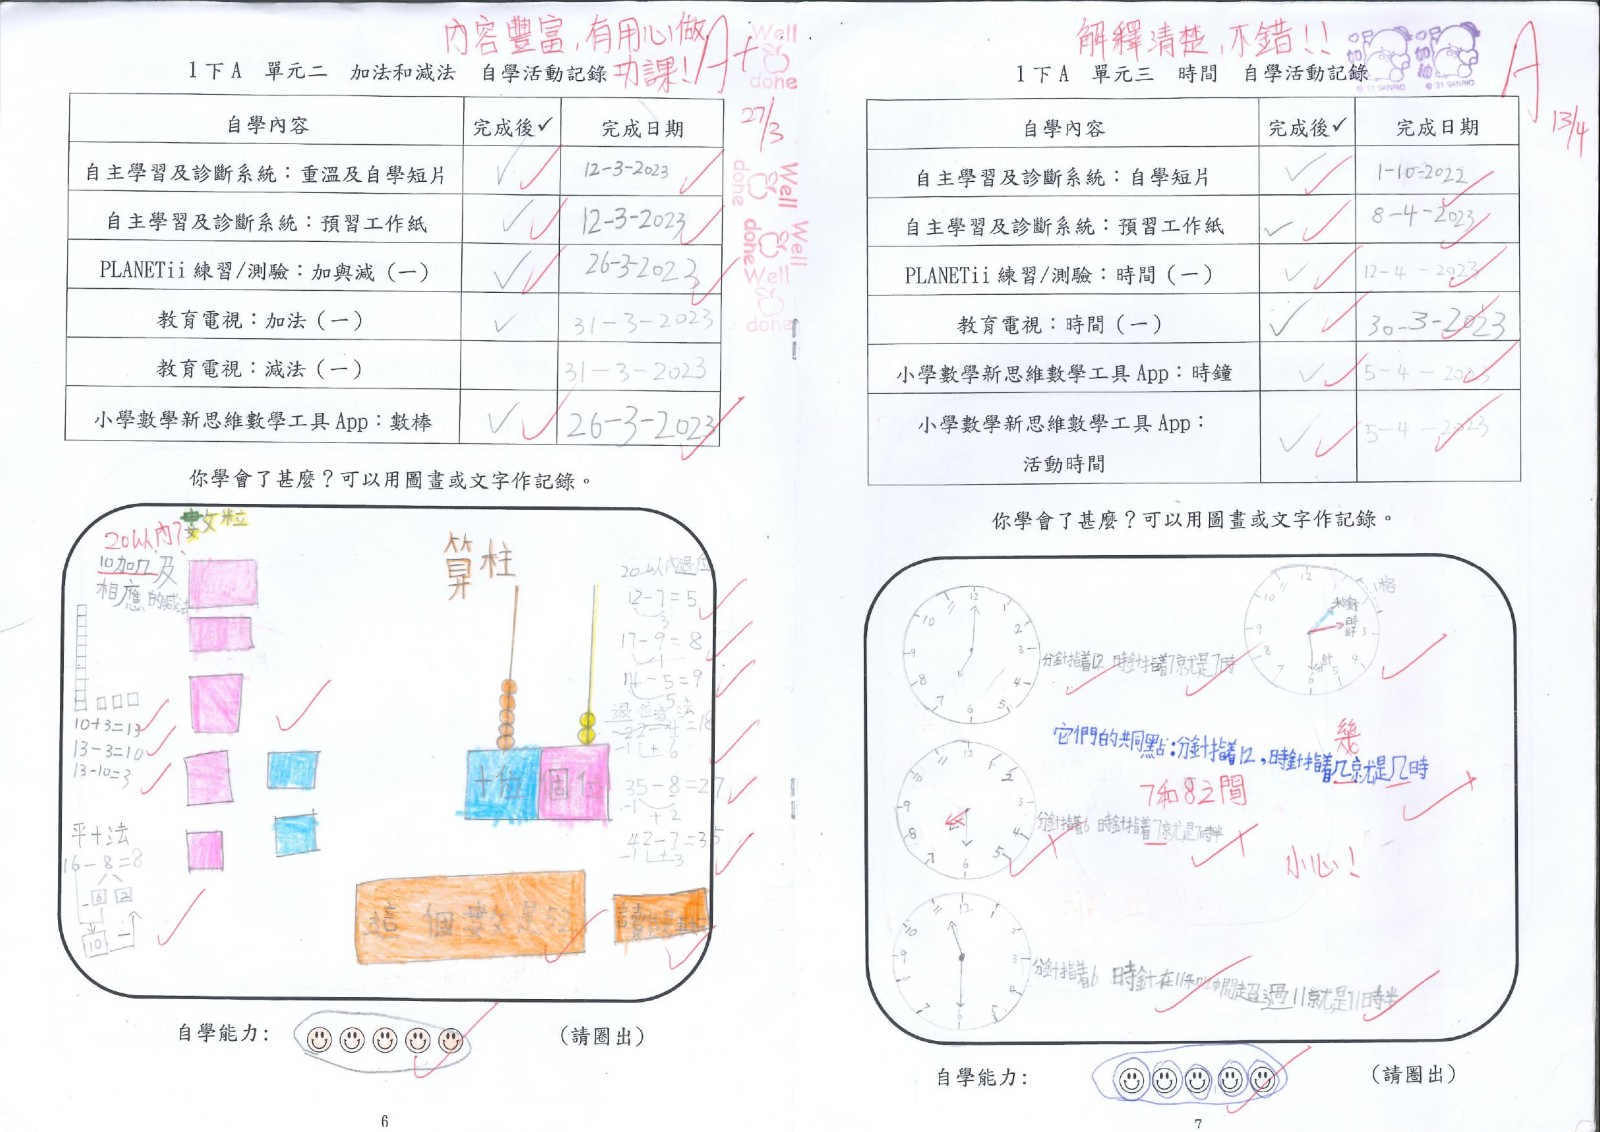 內容豐富，有用心做
功課！ A+
Well done
27/3
1下A 單元二 加法和減法 自學活動記錄
自學內容 完成後✓ 完成日期
自主學習及診斷系統：重溫及自學短片 ✓ 12-3-2023
自主學習及診斷系統：預習工作紙 ✓ 12-3-2023
PLANETii 練習/測驗：加與減（一） ✓ 26-3-2023
教育電視：加法（一） ✓ 31-3-2023
教育電視：減法（一） 31-3-2023
小學數學新思維數學工具App：數棒 ✓ 26-3-2023
Well done
Well done
Well done
你學會了甚麼？可以用圖畫或文字作記錄。
20以內？
數粒
10加几及
相應的減法
10+3=13
13-3=10
13-10=3
平十法
16-8=8
-6 2
10
算柱
十位 個位
這個數是52
20以內退位
12-7=5
3
17-9=8
1
14-5=9
5
退位減法
22-4=18
-1 + 6
35-8=27
-1 +2
42-7=35
-1 +3
自學能力： （請圈出）
6
解釋清楚，不錯！！
A
13/4
加油 加油
© '21 SANRIO © '21 SANRIO
1下A 單元三 時間 自學活動記錄
自學內容 完成後✓ 完成日期
自主學習及診斷系統：自學短片 ✓ 1-10-2022
自主學習及診斷系統：預習工作紙 ✓ 8-4-2023
PLANETii 練習/測驗：時間（一） ✓ 12-4-2023
教育電視：時間（一） ✓ 30-3-2023
小學數學新思維數學工具App：時鐘 ✓ 5-4-2023
小學數學新思維數學工具App：
活動時間 ✓ 5-4-2023
你學會了甚麼？可以用圖畫或文字作記錄。
12 1 2 3 4 5 6 7 8 9 10 11
分針指着12 時針指着7就是7時
1格
秒針
時針
分針
幾
它們的共同點：分針指着12，時針指着几就是几時
7和8之間
分針指着6 時針指着7就是7時半
小心！
分針指着6 時針在11和12中間超過11就是11時半
自學能力： （請圈出）
7